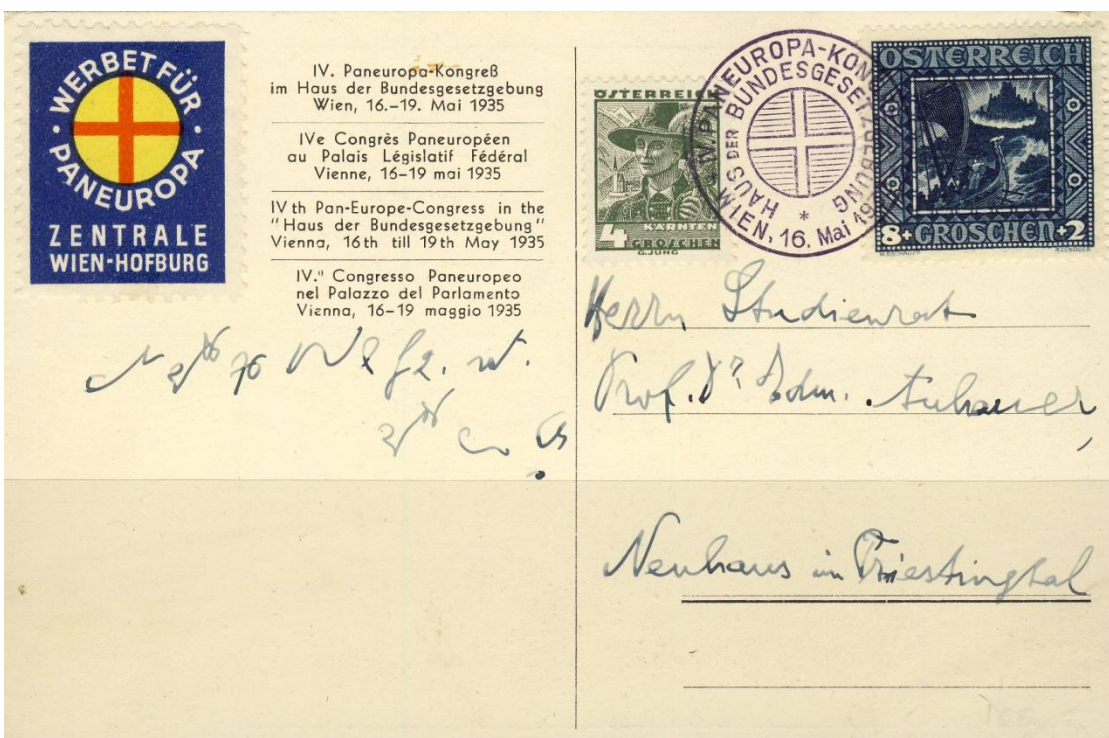 WERBET FÜR
PANEUROPA
ZENTRALE
WIEN-HOFBURG
IV. Paneuropa-Kongreß
im Haus der Bundesgesetzgebung
Wien, 16.–19. Mai 1935
IVe Congrès Paneuropéen
au Palais Législatif Fédéral
Vienne, 16–19 mai 1935
IV th Pan-Europe-Congress in the
"Haus der Bundesgesetzgebung"
Vienna, 16th till 19th May 1935
IV.º Congresso Paneuropeo
nel Palazzo del Parlamento
Vienna, 16–19 maggio 1935
ÖSTERREICH
KÄRNTEN
4 GROSCHEN
G.JUNG
IV. PANEUROPA-KON
HAUS DER BUNDESGESETZGEBUNG
WIEN, 16. Mai 19
ÖSTERREICH
8+GROSCHEN+2
Herrn Studienrat
Prof. Dr. Edm. Auhauer,
Neuhaus in Triestingtal